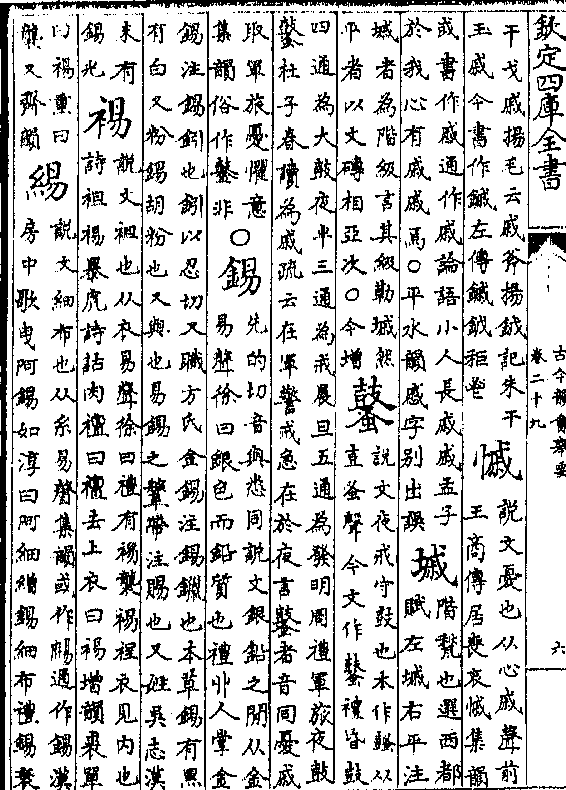 欽定四庫全書
古今韻會舉要
卷二十九
六
干戈戚揚毛云戚斧揚鉞記朱干
玉戚今書作鏚左傳鏚鉞秬鬯
慽
說文憂也从心戚聲前
王商傳居喪哀慽集韻
或書作戚通作戚論語小人長戚戚孟子
於我心有戚戚焉○平水韻慼字別出誤
墄
階甃也選西都
賦左墄右平注
墄者為階級言其級勒墄然
平者以文磚相亞次○今增
鼜
說文夜戒守鼓也本作鼜从
壴蚤聲今文作鼜禮昏鼓
四通為大鼓夜半三通為戒晨旦五通為發明周禮軍旅夜鼓
鼜杜子春讀為戚疏云在軍警戒急在於夜言鼜者音同憂戚
取軍旅憂懼意
集韻俗作鼜非
○錫
先的切音與悉同說文銀鉛之閒从金
易聲徐曰銀色而鉛質也禮丱人掌金
錫注錫鈏也鈏以忍切又職方氏金錫注錫鑞也本草錫有黑
有白又粉錫胡粉也又與也易錫之鞶帶注賜也又姓吳志漢
末有
錫光
裼
說文袒也从衣易聲徐曰禮有裼襲裼裎衣見內也
詩袒裼暴虎詩詁肉襢曰襢去上衣曰裼增韻裘單
以裼熏曰
襲又霽韻
緆
說文細布也从糸易聲集韻或作通作錫漢
房中歌曳阿錫如淳曰阿細繒錫細布禮錫衰